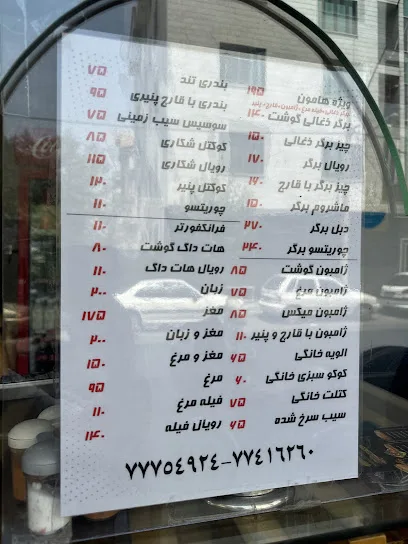 ویژه هامون ۱۹۵
برگر ذغالی گوشت ۱۴۰
چیز برگر ذغالی ۱۵۰
رویال برگر ۱۷۰
چیز برگر با قارچ ۱۶۰
ماشروم برگر ۱۵۰
دبل برگر ۲۷۰
چوریتسو برگر ۲۴۰
ژامبون گوشت ۸۵
ژامبون مرغ ۷۵
ژامبون میکس ۸۵
ژامبون با قارچ و پنیر ۱۱۰
الویه خانگی ۶۵
کوکو سبزی خانگی ۶۰
کتلت خانگی ۷۵
سیب سرخ شده ۶۵
بندری تند ۷۵
بندری با قارچ پنیری ۹۵
سوسیس سیب زمینی ۷۵
کوکتل شکاری ۸۵
رویال شکاری ۱۱۵
کوکتل پنیر ۱۲۰
چوریتسو ۱۱۰
فرانکفورتر ۱۱۰
هات داگ گوشت ۸۰
رویال هات داگ ۱۱۰
زبان ۲۰۰
مغز ۱۷۵
مغز و زبان ۲۰۰
مغز و مرغ ۱۵۰
مرغ ۹۵
فیله مرغ ۱۱۰
رویال فیله ۱۴۰
۷۷۷۵۴۹۲۴-۷۷۴۱۶۲۶۰